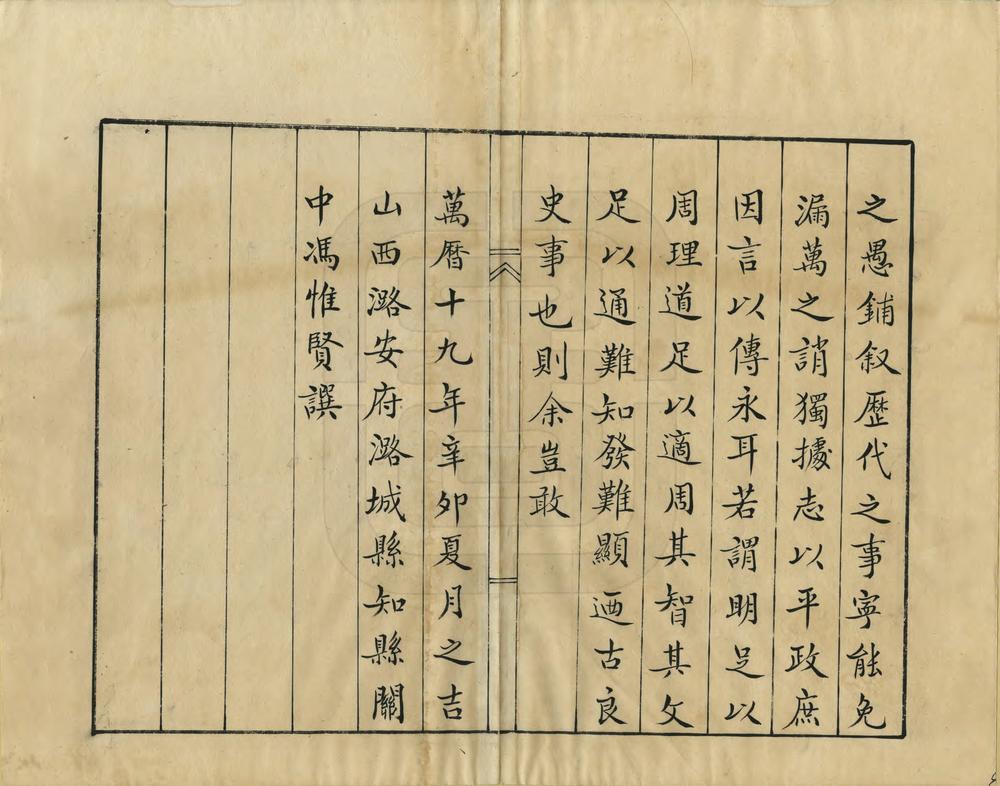 之愚鋪叙歷代之事寧能免
漏萬之誚獨據志以平政庶
因言以傳永耳若謂明足以
周理道足以適周其智其文
足以通難知發難顯迺古良
史事也則余豈敢
萬曆十九年辛卯夏月之吉
山西潞安府潞城縣知縣關
中馮惟賢譔